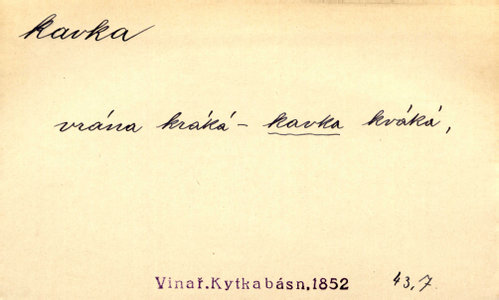 kavka
vrána kráká – kavka kváká,
Vinař.Kytkabásn,1852 43,7